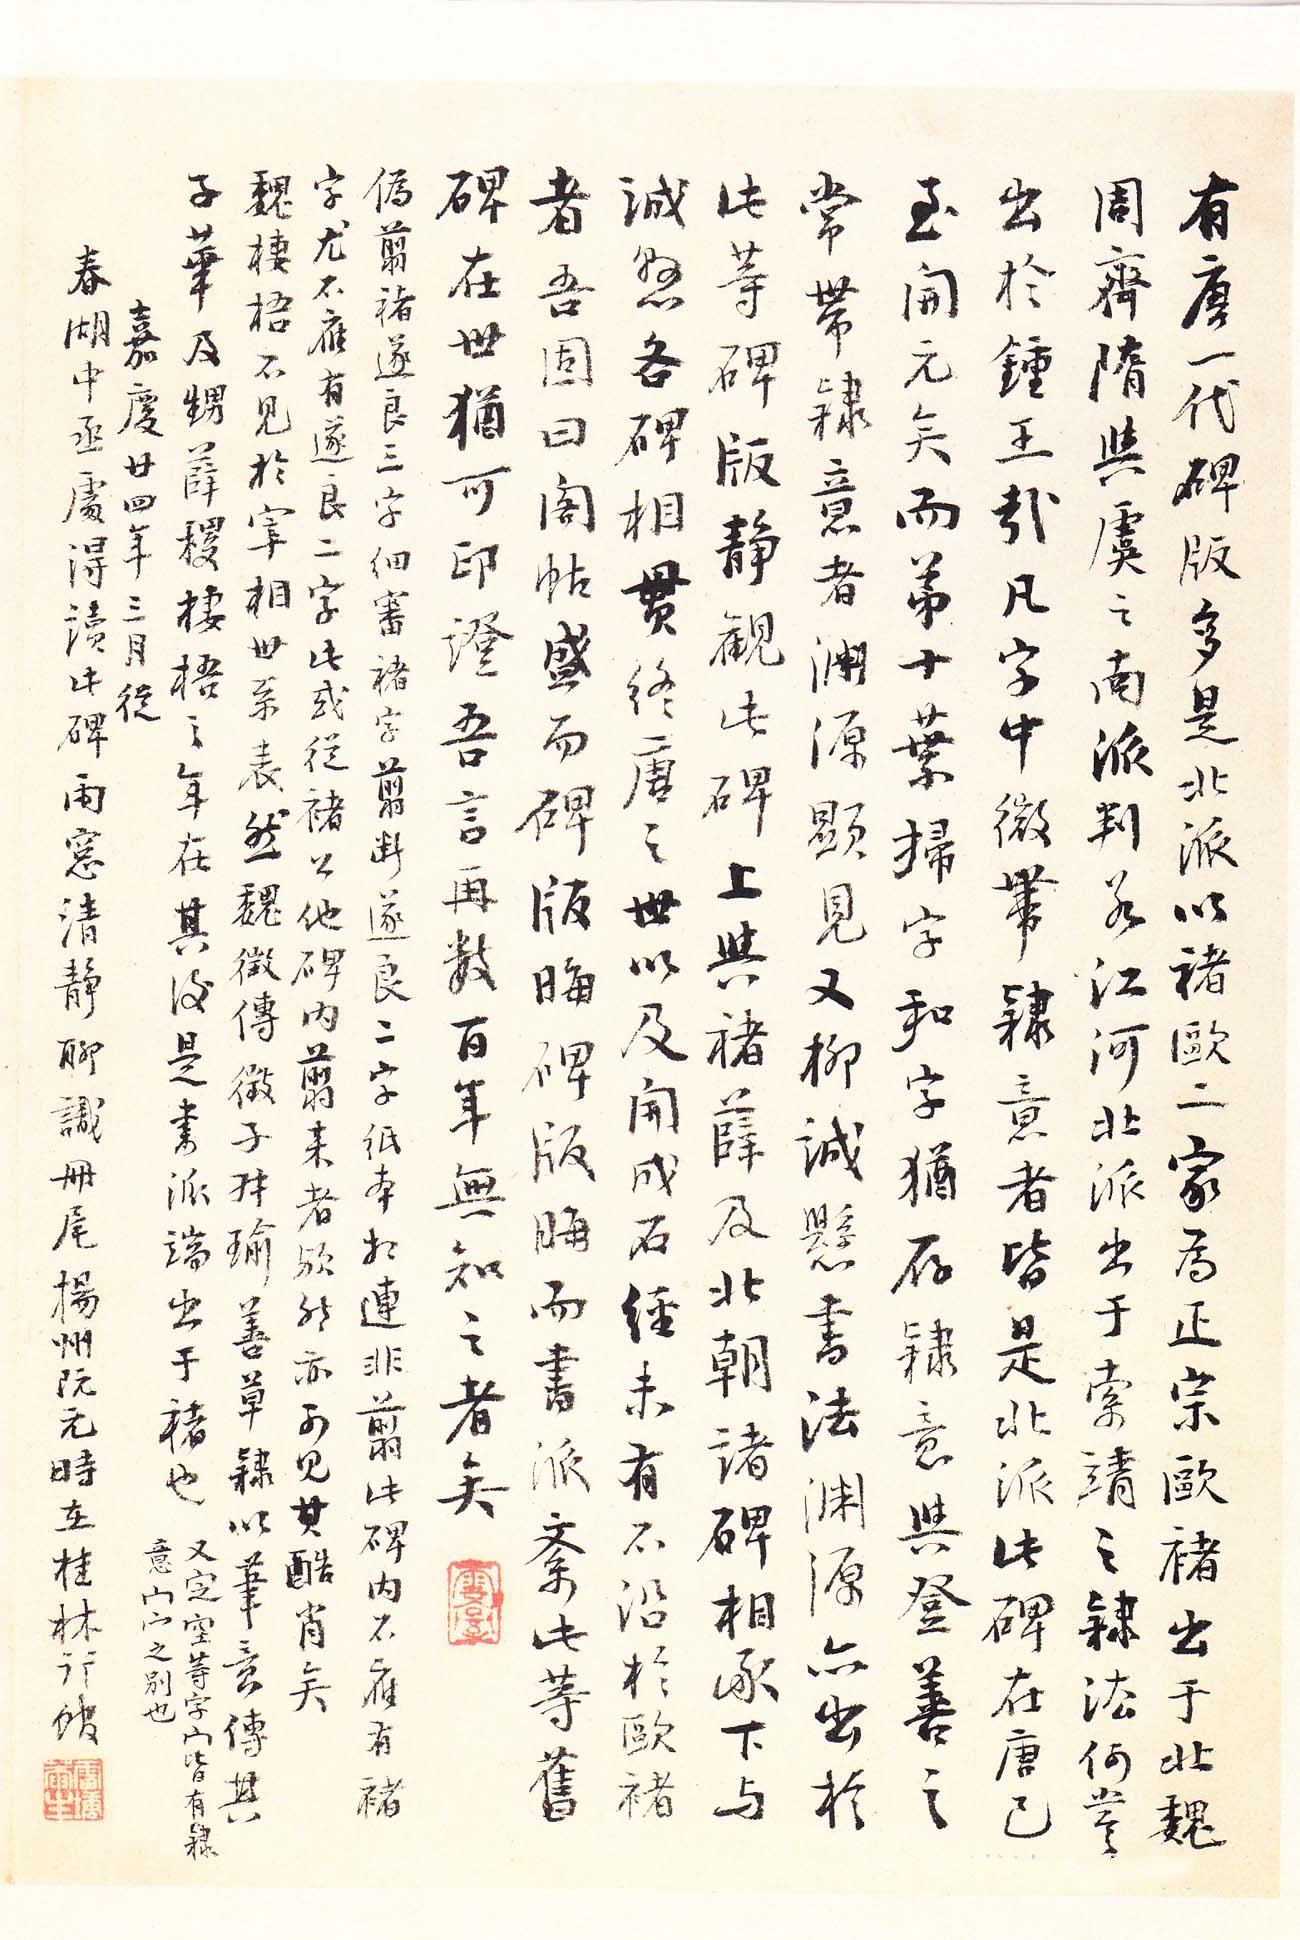 有唐一代碑版多是北派以褚歐二家為正宗歐褚出于北魏
周齊隋與虞之南派判若江河北派出于索靖之隸法何嘗
出於鍾王哉凡字中微帶隸意者皆是北派此碑在唐已
至開元矣而弟十葉掃字和字猶存隸意與登善之
常帶隸意者淵源顯見又柳誠懸書法淵源亦出於
此等碑版靜觀此碑上與褚薛及北朝諸碑相承下与
誠懸各碑相貫終唐之世以及開成石經未有不沿於歐褚
者吾固曰閣帖盛而碑版晦碑版晦而書派紊此等舊
碑在世猶可印證吾言再數百年無知之者矣
偽翦褚遂良三字細審褚字翦斷遂良二字紙本相連非翦此碑內不應有褚
字尤不應有遂良二字此或從褚公他碑內翦來者歟然亦可見其酷肖矣
魏棲梧不見於宰相世系表然魏徵傳徵子叔瑜善草隸以筆意傳其
子華及甥薛稷棲梧之年在其後是書派端出于褚也
又定空等字宀皆有隸
意宀宀之別也
嘉慶廿四年三月從
春湖中丞處得讀此碑雨窗清靜聊識冊尾揚州阮元時在桂林行館